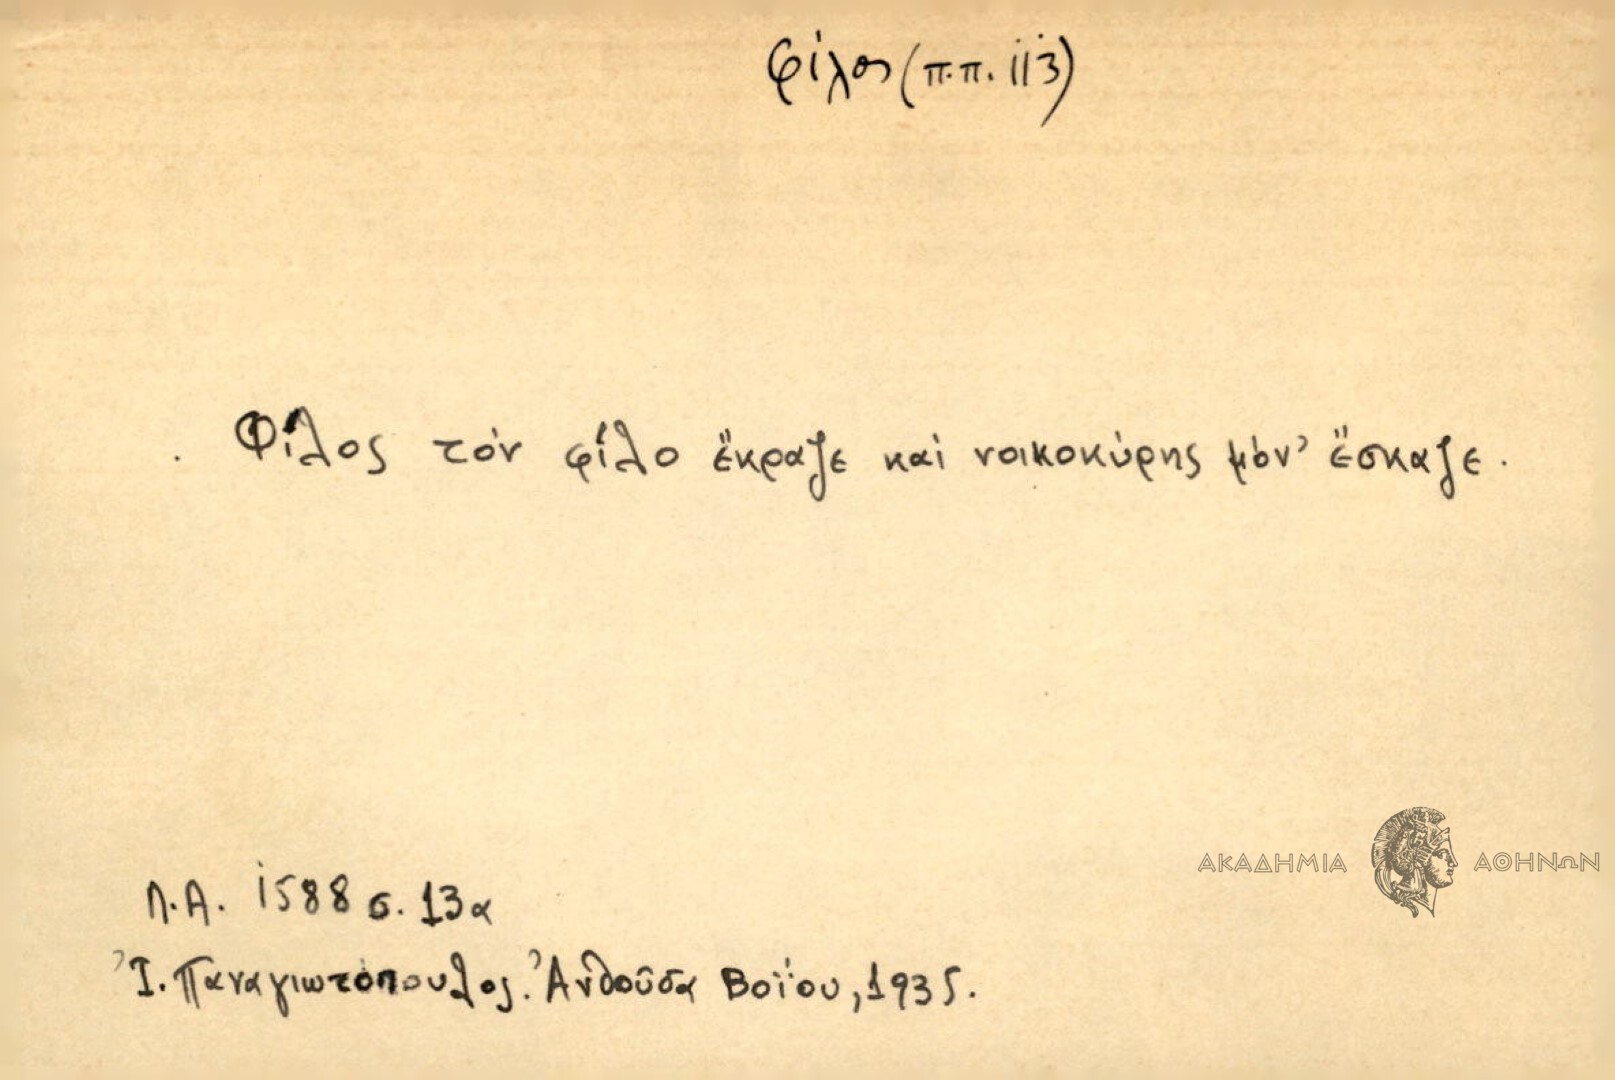 φίλος (π.π. 113)
Φίλος τόν φίλο ἔκραζε καί νοικοκύρης μόν' ἔσκαζε.
ΑΚΑΔΗΜΙΑ ΑΘΗΝΩΝ
Λ.Α. 1588 σ. 13α
Ἰ. Παναγιωτόπουλος. Ἀνθοῦσα Βοΐου, 1935.